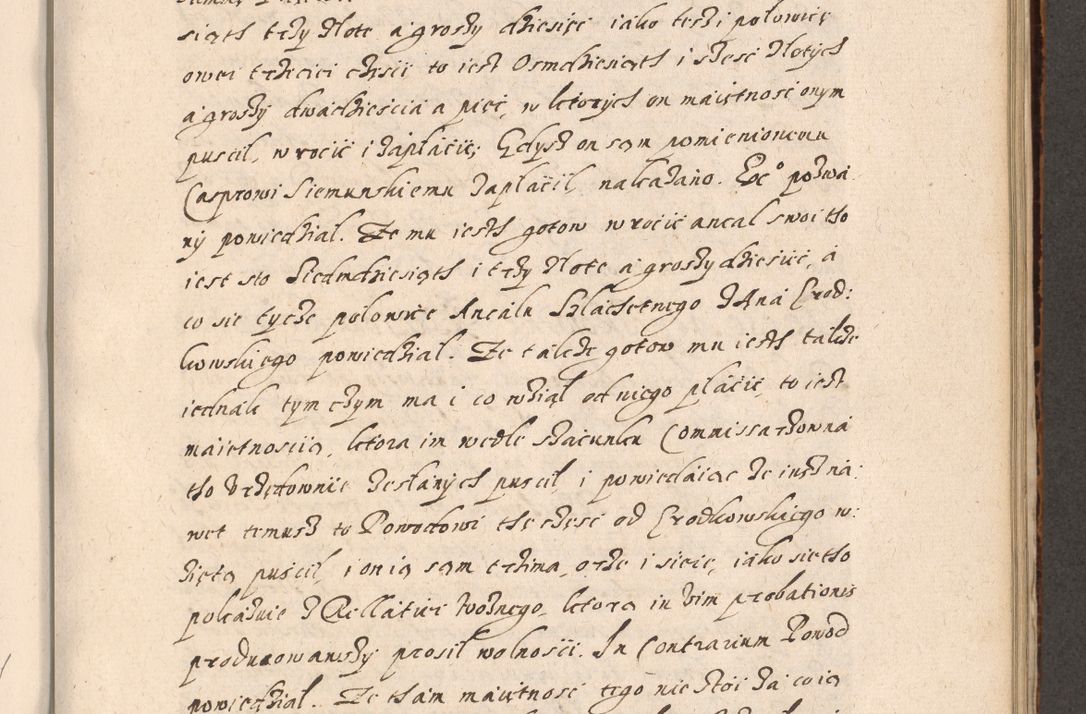 siąth trzy złote a groszy dziesięc iako teszi polowicę
owei trzeciei częsci to iest Osmdziesiąth i szesc złotych
a groszy dwadziescia a pięc, w ktorych on maiętnosc onym
puscil, wrocic i zaplacic, Gdysz on sąm pomienionemu
Casprowi Siemunskiemu zaplacil, nakazano. Eoc° pozwa
ny powiedzial. Ze mu iesth gotow wrocic ancal swoi tho
iest sto Siedmdziesiąth i trzy złote a groszy dziesiec, a
co sie tycze polowice Ancalu Szlachetnego Jana Crod:
kowskiego powiedzial. Ze takze gotow mu iesth takze
iednak tym czym ma i co wział od niego płacic, to iest
maiętnoscią, ktora im wedle szacunku Commissarzow na
tho Vrzędownie zesłanych puscil, i powiedaiąc ze iusz na:
wet temusz to Powodowi the częsc od Crodkowskiego w:
zięta puscil, i on ią sąm trzima, orze i sieie, iako sie tho
pokazuie z Rellatiei woznego, ktorą in vim probationis
produxowawszy prosil wolnosci. In Contrarium Powod
powiedzial. Ze tham maiętnosc tego nie stoi za co ią